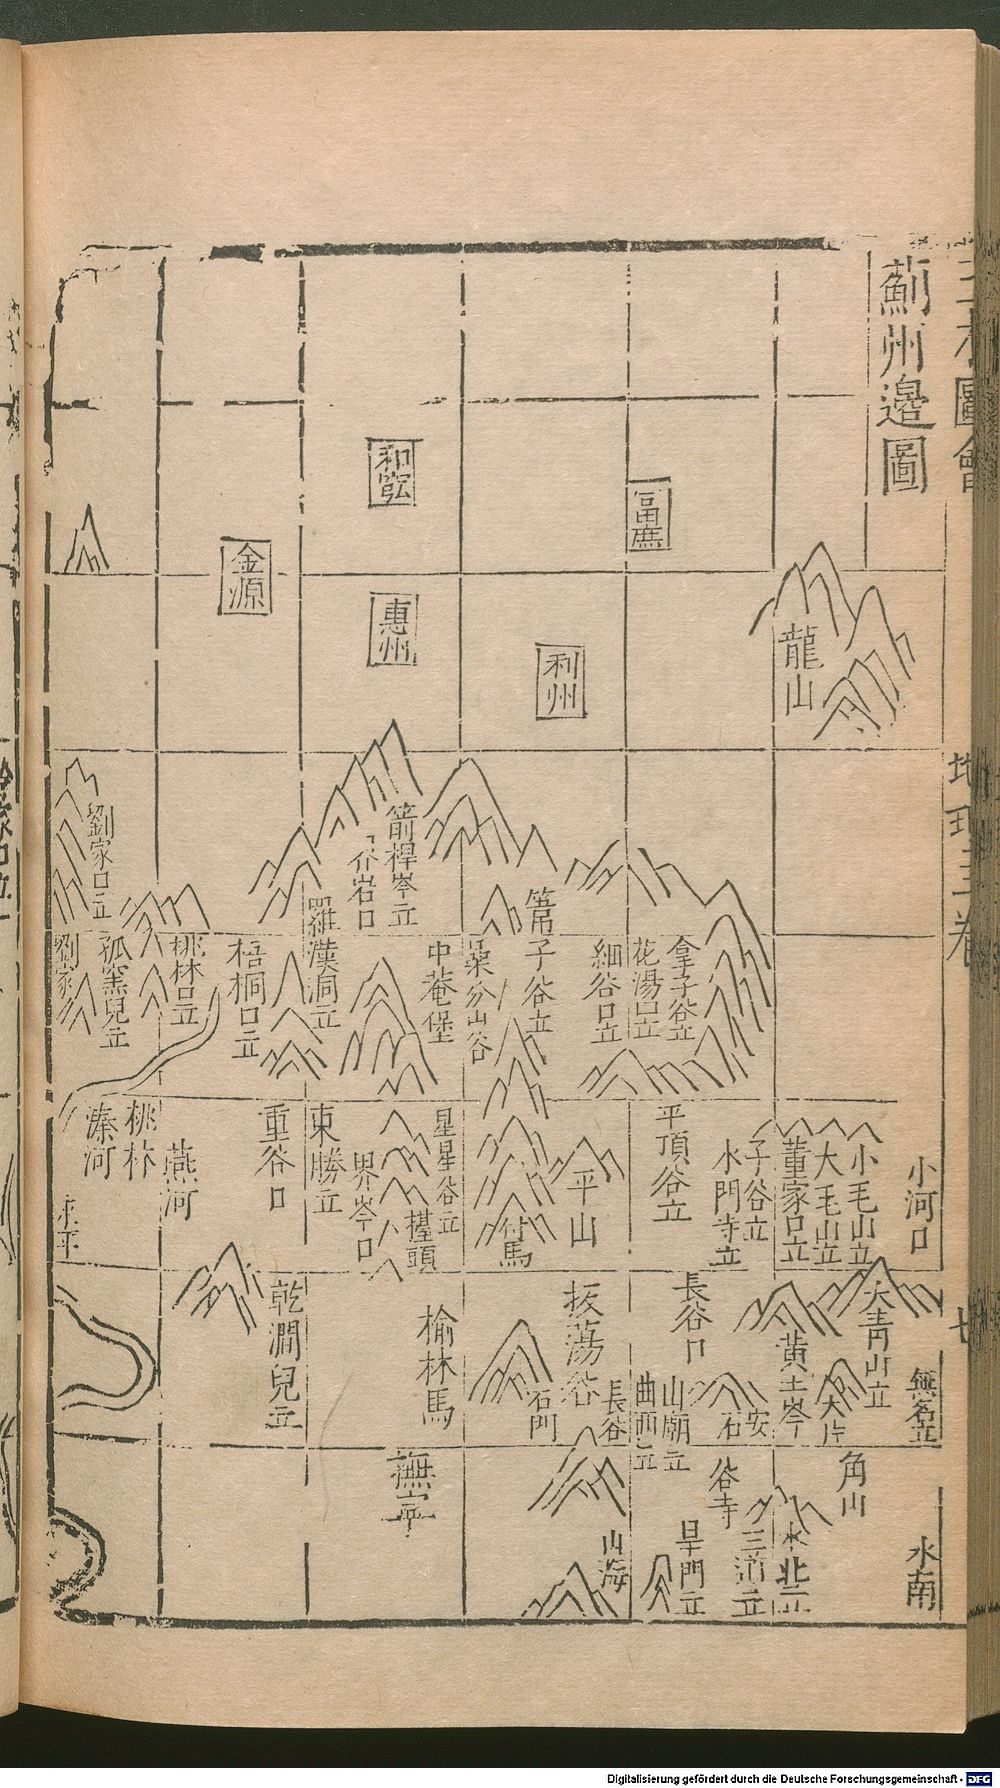 三才圖會
地理三卷
七
薊州邊圖
富庶
和
惠州
金源
利州
龍山
劉家口立
箭桿岑立
岩口
羅漢洞立
子谷立
拿子谷立
花湯口立
細谷口立
分山谷
中菴堡
梧桐口立
桃林口立
窯兒立
劉家
小河口
小毛山立
大毛山立
董家口立
子谷立
水門寺立
平頂谷立
平山
付馬
星星谷立
頭
界岑口
東勝立
重谷口
燕河
桃林
河
大青山立
無名立
大片
黃土岑
安
石
長谷口
山廟立
曲西立
長谷
拔蕩谷
石門
榆林馬
乾澗兒立
角山
水南
水北立
三道立
谷寺
旱門立
山海
撫寧
Digitalisierung gefördert durch die Deutsche Forschungsgemeinschaft - DFG